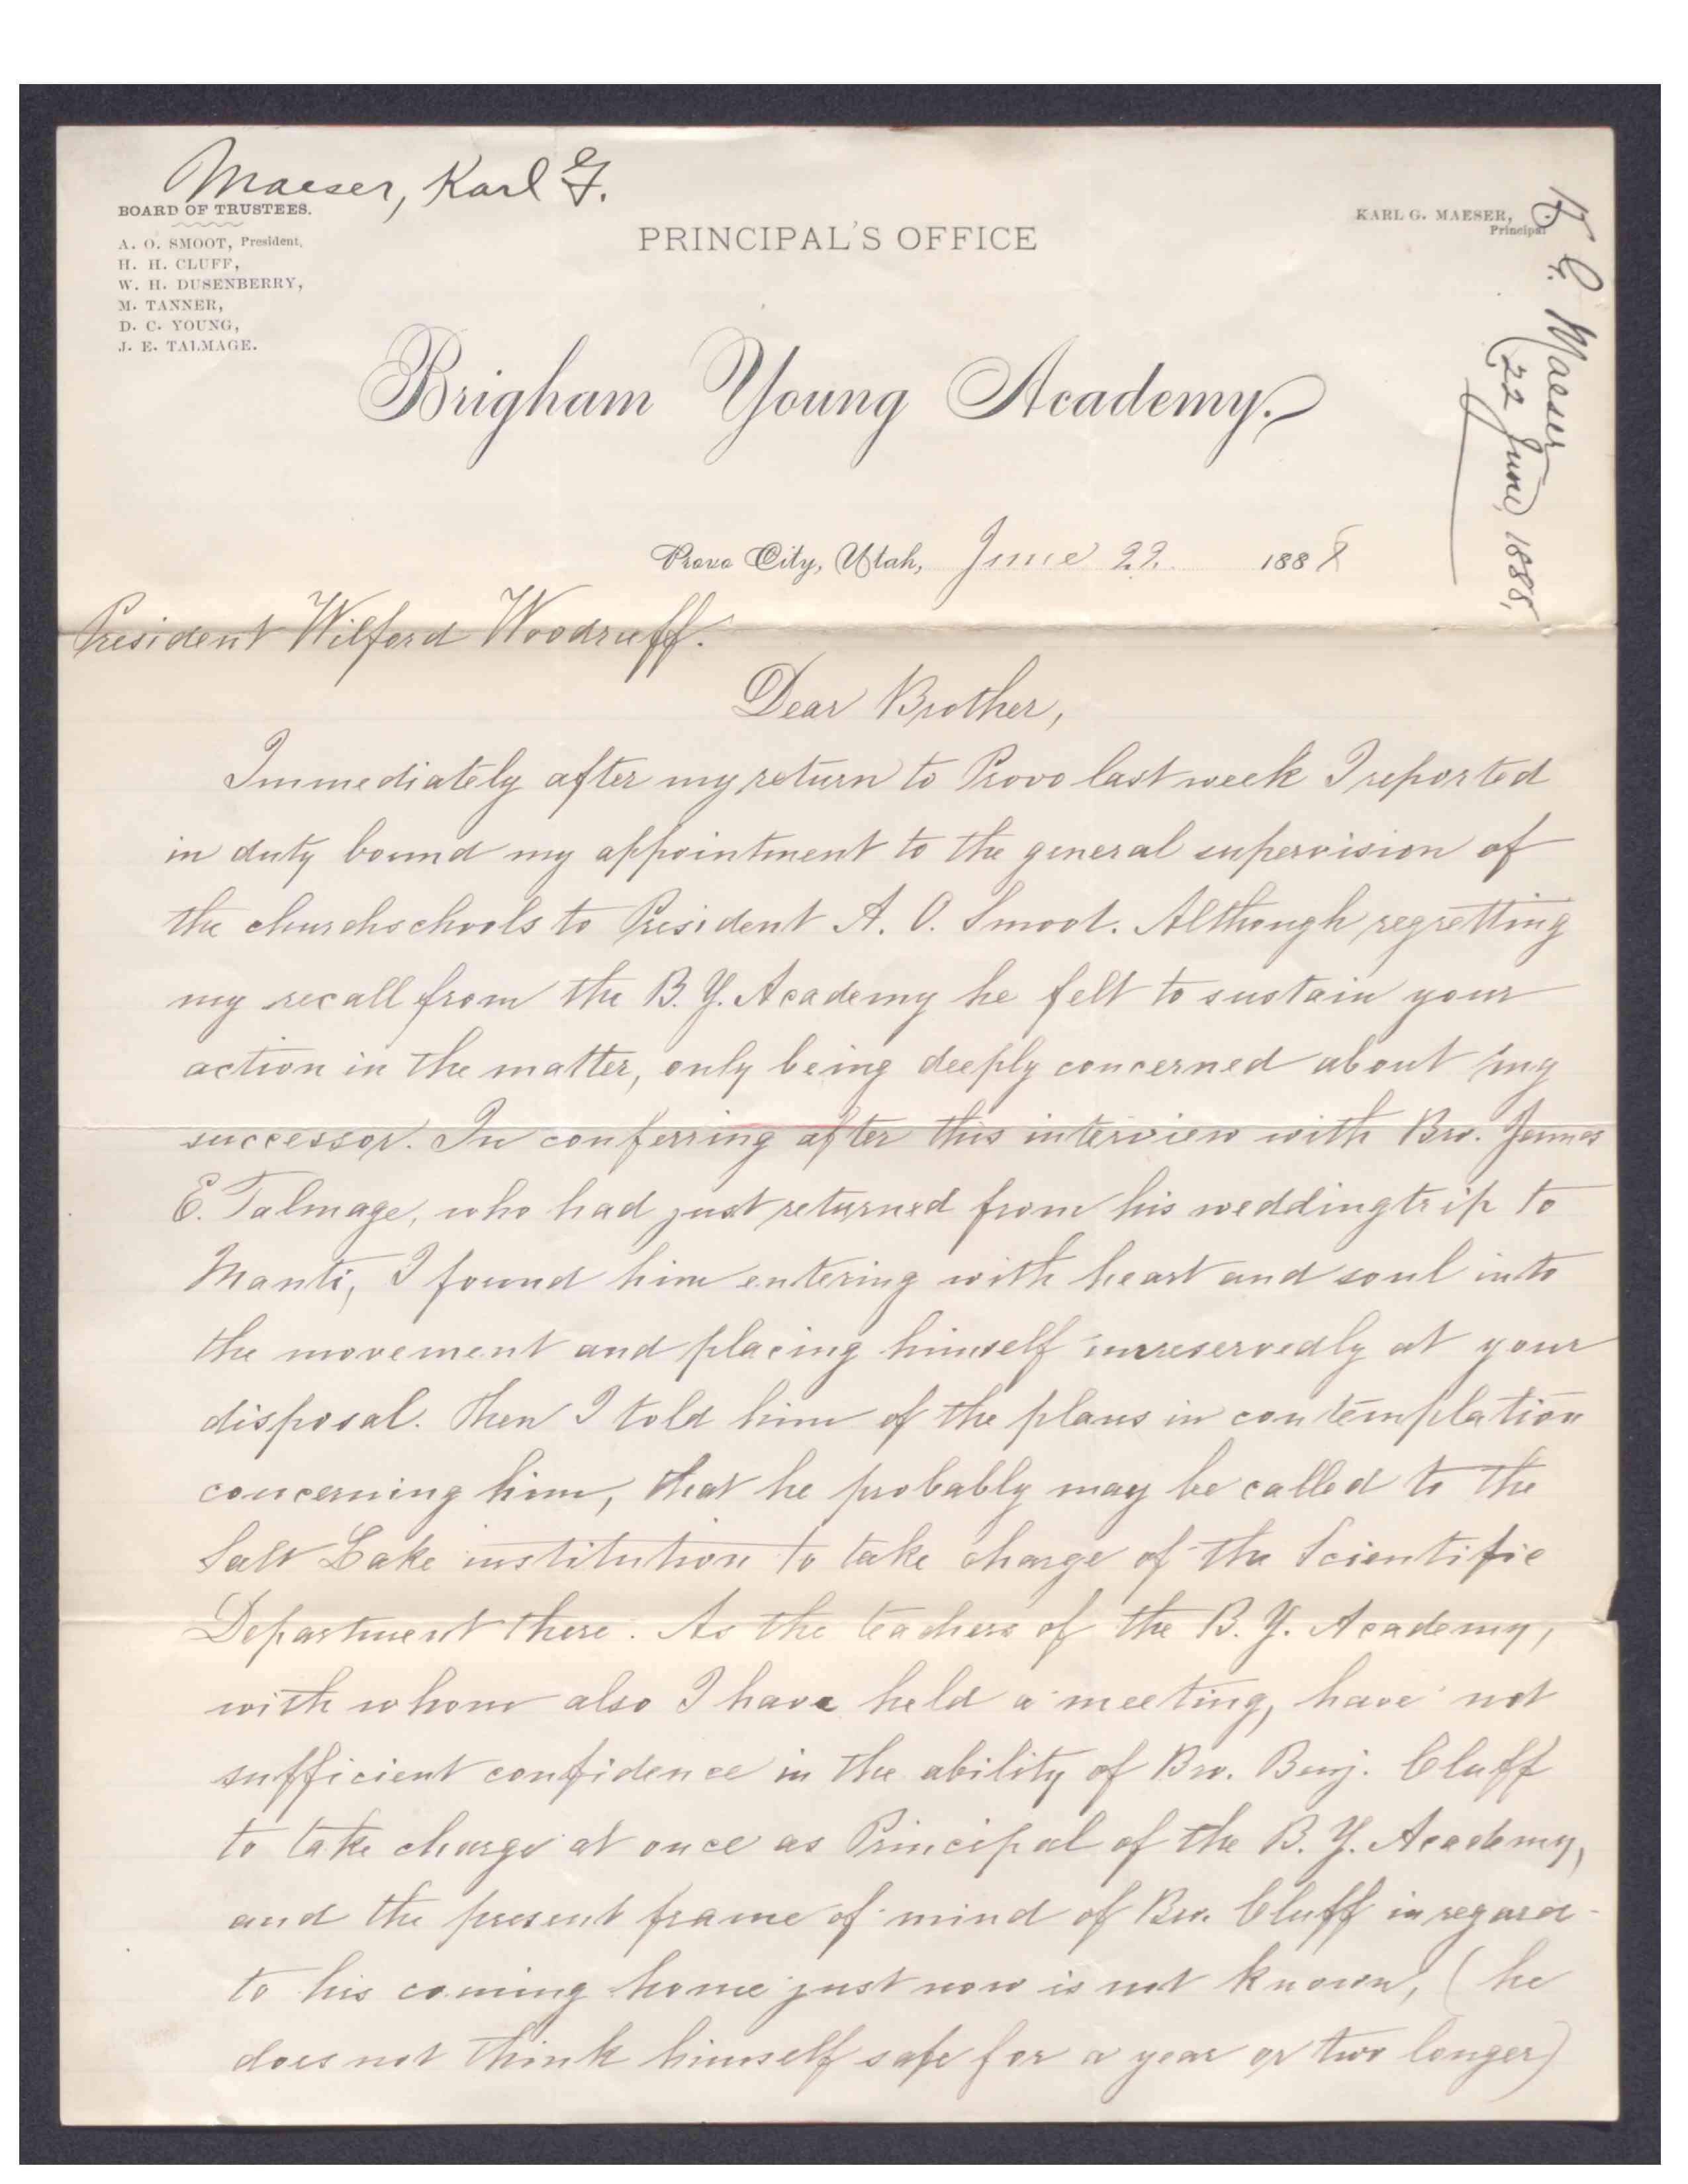 Maeser, Karl G.
BOARD OF TRUSTEES.
A. O. SMOOT, President,
H. H. CLUFF,
W. H. DUSENBERRY,
M. TANNER,
D. C. YOUNG,
J. E. TALMAGE.
PRINCIPAL'S OFFICE
KARL G. MAESER,
Principal
Maeser
22 June, 1888,
Brigham Young Academy.
Provo City, Utah, June 22. 1888
President Wilford Woodruff.
Dear Brother,
Immediately after my return to Provo last week I reported
in duty bound my appointment to the general supervision of
the churchschools to President A. O. Smoot. Although regretting
my recall from the B. Y. Academy he felt to sustain your
action in the matter, only being deeply concerned about my
successor. In conferring after this interview with Bro. James
E. Talmage, who had just returned from his weddingtrip to
Manti, I found him entering with heart and soul into
the movement and placing himself unreservedly at your
disposal. Then I told him of the plans in contemplation
concerning him, that he probably may be called to the
Salt Lake institution to take charge of the Scientific
Department there. As the teachers of the B. Y. Academy,
with whom also I have held a meeting, have not
sufficient confidence in the ability of Bro. Benj. Cluff
to take charge at once as Principal of the B. Y. Academy,
and the present frame of mind of Bro. Cluff in regard
to his coming home just now is not known, (he
does not think himself safe for a year or two longer)